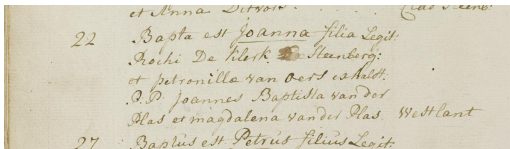 et Anna Ditvoir.
22 Bapta est Joanna filia Legit:
Rochi De Klerk Steenberg:
et petronilla van oers exhaldt:
P.P. Joannes Baptista van der
Plas et magdalena vander Plas. Westlant
27 Baptus est Petrus filius Legit: